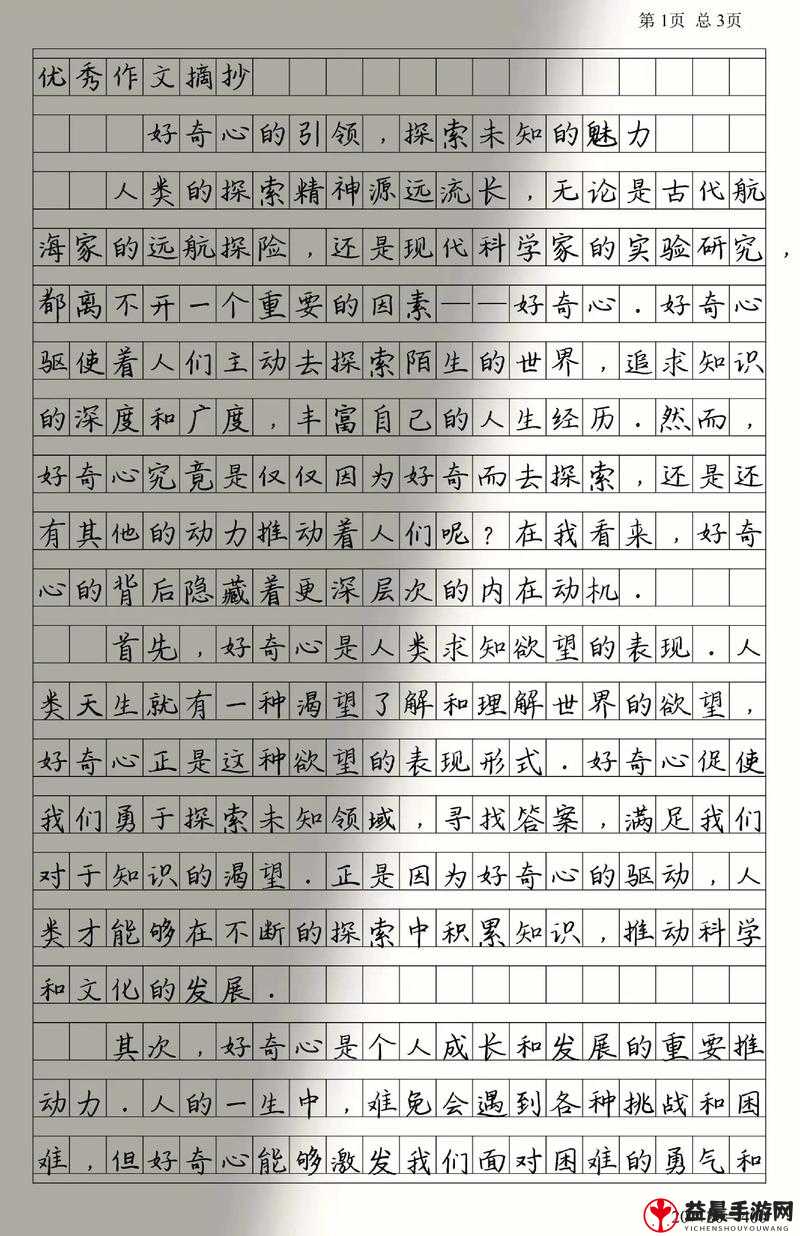 第1页 总3页
优秀作文摘抄
好奇心的引领，探索未知的魅力
人类的探索精神源远流长，无论是古代航
海家的远航探险，还是现代科学家的实验研究，
都离不开一个重要的因素——好奇心．好奇心
驱使着人们主动去探索陌生的世界，追求知识
的深度和广度，丰富自己的人生经历．然而，
好奇心究竟是仅仅因为好奇而去探索，还是还
有其他的动力推动着人们呢？在我看来，好奇
心的背后隐藏着更深层次的内在动机．
首先，好奇心是人类求知欲望的表现．人
类天生就有一种渴望了解和理解世界的欲望，
好奇心正是这种欲望的表现形式．好奇心促使
我们勇于探索未知领域，寻找答案，满足我们
对于知识的渴望．正是因为好奇心的驱动，人
类才能够在不断的探索中积累知识，推动科学
和文化的发展．
其次，好奇心是个人成长和发展的重要推
动力．人的一生中，难免会遇到各种挑战和困
难，但好奇心能够激发我们面对困难的勇气和
益晨手游网
YICHENSHOUYOUWANG